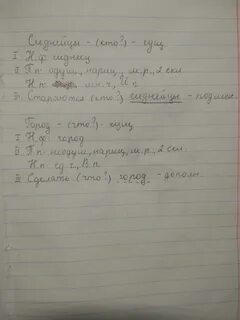 Сиднейцы - (кто?) - сущ
I Н.ф сиднеец
II П.п одуш., нариц., м.р., 2 скл.
Н.п. мн.ч., И.п.
III Стараются (кто?) сиднейцы - подлеж.
Город - (что?) - сущ.
I Н.ф. город
II П.п неодуш., нариц., м.р., 2 скл.
Н.п ед.ч., В.п.
III Сделать (что?) город - дополн.